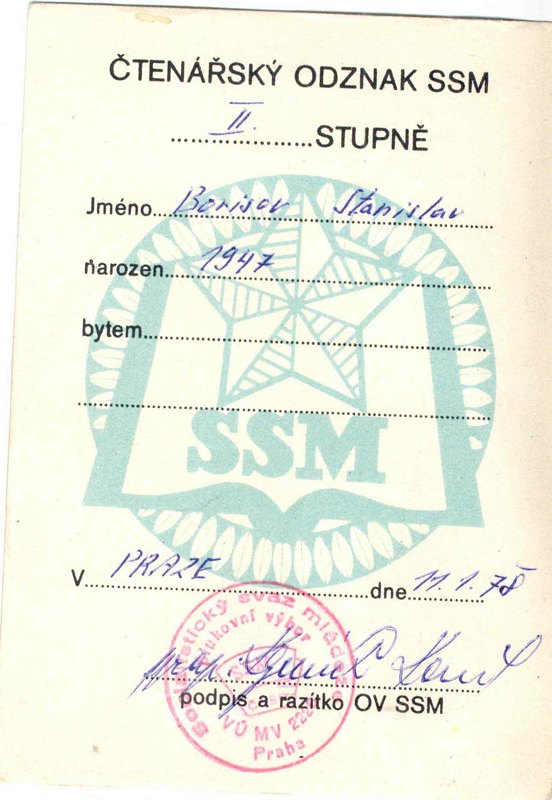 ČTENÁŘSKÝ ODZNAK SSM
II. STUPNĚ
Jméno Borisov Stanislav
narozen 1947
bytem
SSM
V PRAZE dne 11.1.78
podpis a razítko OV SSM
Socialistický svaz mládeže
útvarový výbor
VÚ MV 222
Praha